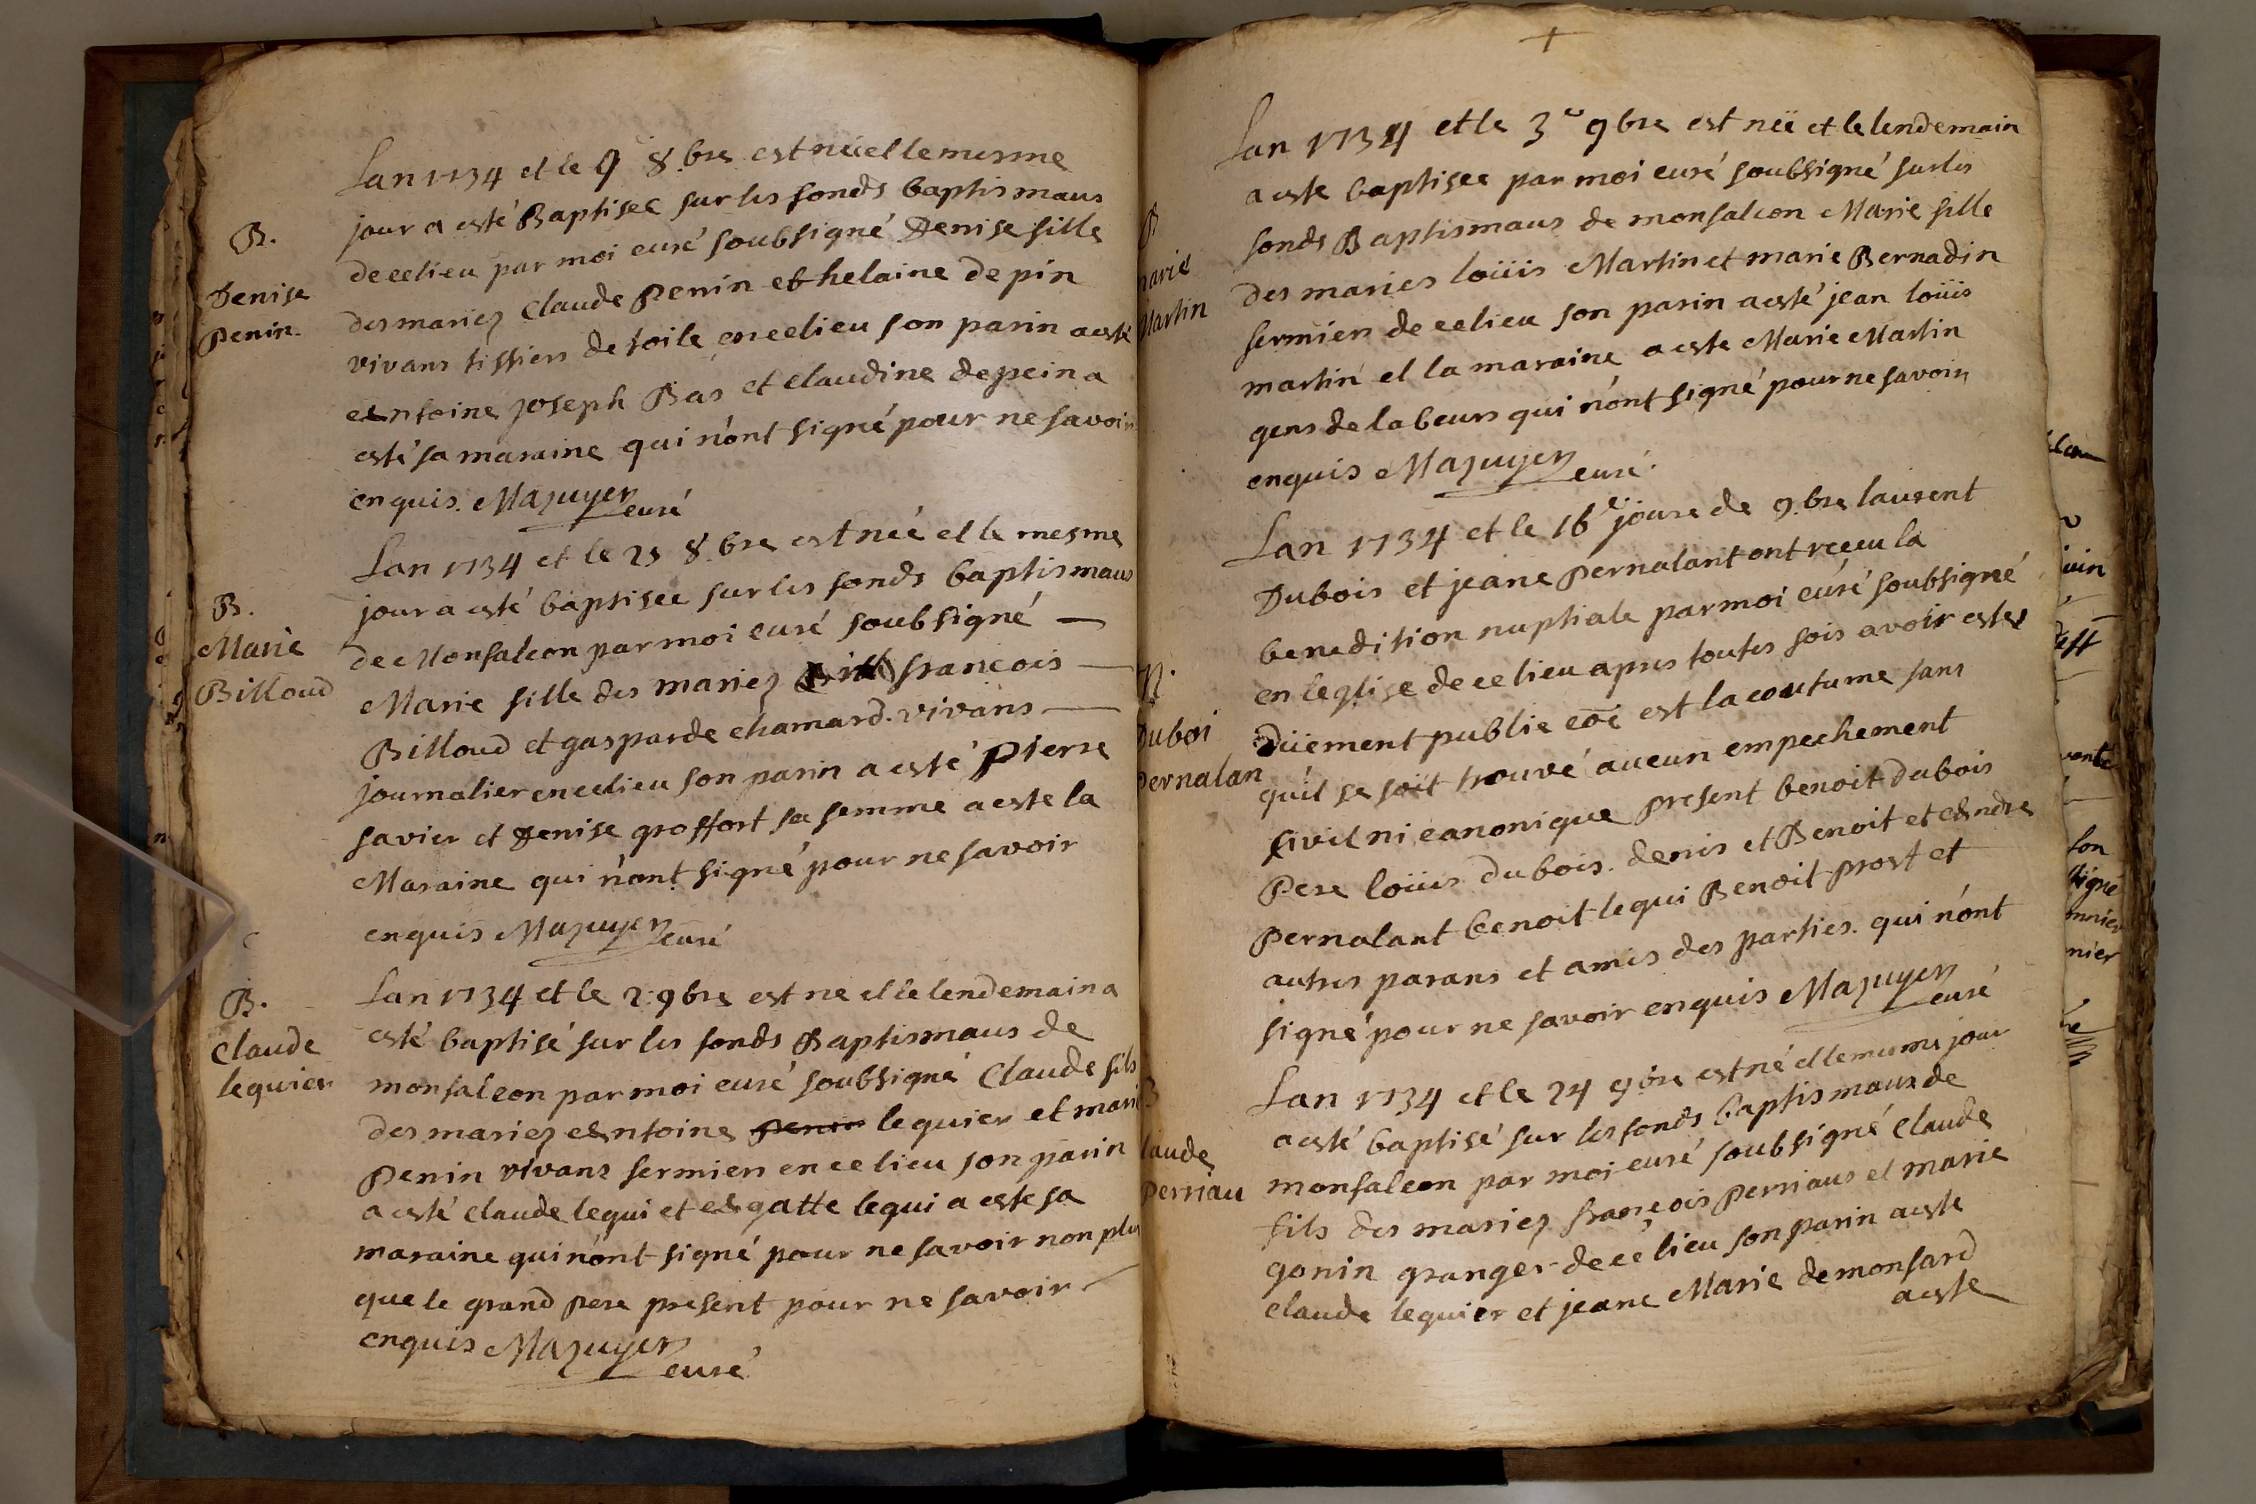 B.
Denise
Penin.
Lan 1734 et le 9 8.bre est née et le mesme
jour a esté Baptisee sur les fonds baptismaus
de ce lieu par moi curé soubsigné Denise fille
des mariez Claude Penin et helaine depin
vivans tissiers de toile en ce lieu son parin a esté
Antoine joseph Bas et Claudine depein a
esté sa maraine qui n'ont signé pour ne savoir
enquis. Mazuyer curé
B.
Marie
Billoud
Lan 1734 et le 25 8.bre est née et le mesme
jour a esté baptisee sur les fonds baptismaus
de Monfalcon par moi curé soubsigné
Marie fille des mariez francois
Billoud et gasparde chamard. vivans
journalier en ce lieu son parin a esté pierre
favier et Denise groffort sa femme a este la
Maraine qui n'ont signé pour ne savoir
enquis Mazuyer curé
B.
Claude
lequier
Lan 1734 et le 2.9bre est ne et le lendemain a
esté baptisé sur les fonds Baptismaus de
monfalcon par moi curé soubsigné Claude fils
des mariez Antoine penin lequier et marie
Penin vivans fermiers en ce lieu son parin
a esté claude lequi et Agatte lequi a este sa
maraine qui n'ont signé pour ne savoir non plus
que le grand pere present pour ne savoir
enquis Mazuyer
curé
+
B
marie
Martin
Lan 1734 et le 3e 9bre est néé et le lendemain
a este baptisee par moi curé soubsigné sur les
fonds Baptismaus de monfalcon Marie fille
des maries loüis Martin et marie Bernadin
fermiers de ce lieu son parin a esté jean loüis
martin et la maraine a este Marie Martin
gens de labeurs qui n'ont signé pour ne savoir
enquis Mazuyer curé.
N.
Duboi
Pernalan
Lan 1734 et le 16e jour de 9.bre laurent
Dubois et jeane Pernalant ont receu la
benedition nuptiale par moi curé soubsigné
en leglise de ce lieu apres toutes fois avoir estes
düement publie coe est la coutume sans
qu'il se soit trouvé aucun empechement
sivil ni canonique present benoit dubois
Pere loüis Dubois. denis et Benoit et Andre
Pernalant benoit lequi Benoit prost et
autres parans et amis des parties. qui n'ont
signé pour ne savoir enquis Mazuyer
curé
B
laude
Perriau
Lan 1734 et le 24 9.bre est né et le mesme jour
a esté baptisé sur les fonds baptismaux de
monfalcon par moi curé soubsigné Claude
fils des mariez francois Perriaus et marie
gonin granger de ce lieu son parin a este
Claude lequier et jeane Marie demonfard
a este